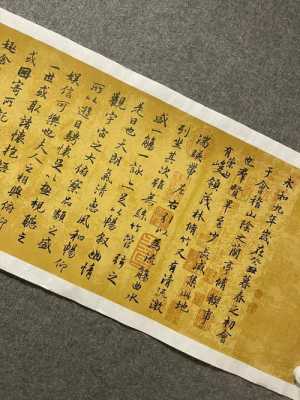 永和九年歲在癸丑暮春之初會
于會稽山陰之蘭亭脩禊事
也羣賢畢至少長咸集此地
有崇山峻領茂林脩竹又有清流激
湍暎帶左右為流觴曲水
列坐其次雖無絲竹管弦之
盛一觴一詠亦足以暢叙幽情
是日也天朗氣清惠風和暢仰
觀宇宙之大俯察品類之盛
所以遊目騁懷足以極視聽之
娛信可樂也夫人之相與俯仰
一世或取諸懷抱
或因寄所託
趣舍